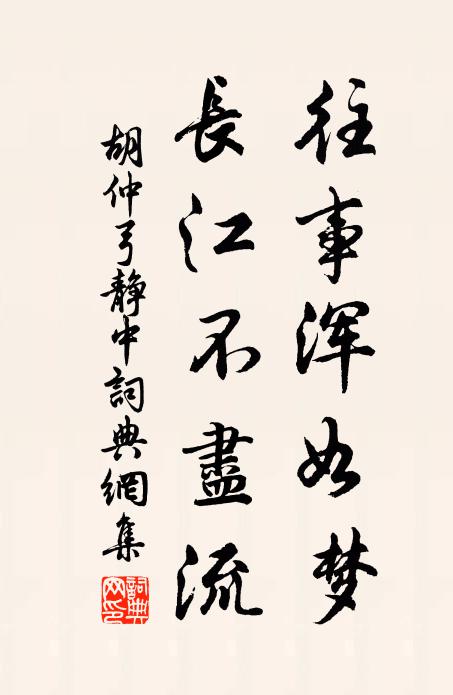 往事浑如梦
長江不盡流
胡仲弓静中詞典網集
詞典网印